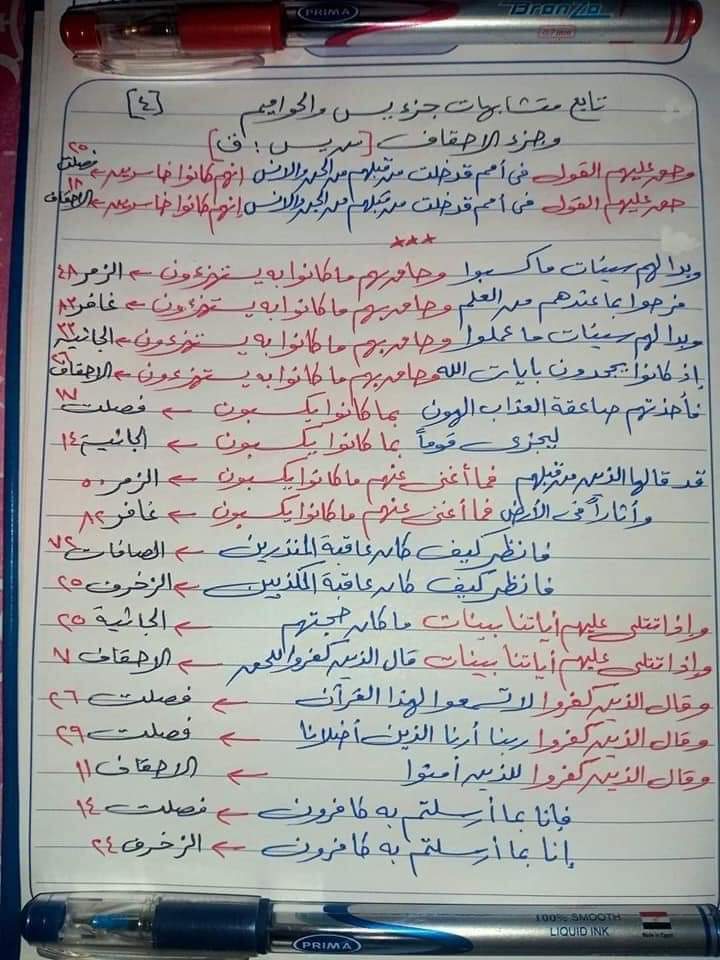 PRIMA Bronzo 0.7mm
تابع متشابهات جزء يس والحواميم [٤]
وجزء الاحقاف [من يس : ق]
وحق عليهم القول في أمم قد خلت من قبلهم من الجن والانس إنهم كانوا خاسرين ← فصلت ٢٥
حق عليهم القول في أمم قد خلت من قبلهم من الجن والانس إنهم كانوا خاسرين ← الاحقاف ١٨
***
وبدا لهم سيئات ما كسبوا وحاق بهم ما كانوا به يستهزءون ← الزمر ٤٨
فرحوا بما عندهم من العلم وحاق بهم ما كانوا به يستهزءون ← غافر ٨٣
وبدا لهم سيئات ما عملوا وحاق بهم ما كانوا به يستهزءون ← الجاثية ٣٣
إذ كانوا يجحدون بايات الله وحاق بهم ما كانوا به يستهزءون ← الاحقاف ٢٦
فأخذتهم صاعقة العذاب الهون بما كانوا يكسبون ← فصلت ١٧
ليجزى قوماً بما كانوا يكسبون ← الجاثية ١٤
قد قالها الذين من قبلهم فما أغنى عنهم ما كانوا يكسبون ← الزمر ٥٠
وأثاراً في الأرض فما أغنى عنهم ما كانوا يكسبون ← غافر ٨٢
فانظر كيف كان عاقبة المنذرين ← الصافات ٧٣
فانظر كيف كان عاقبة المكذبين ← الزخرف ٢٥
وإذا تتلى عليهم أياتنا بينات ما كان حجتهم ← الجاثية ٢٥
وإذا تتلى عليهم أياتنا بينات قال الذين كفروا للحق ← الاحقاف ٧
وقال الذين كفروا لا تسمعوا لهذا القرآن ← فصلت ٢٦
وقال الذين كفروا ربنا أرنا الذين أضلانا ← فصلت ٢٩
وقال الذين كفروا للذين أمنوا ← الاحقاف ١١
فإنا بما أرسلتم به كافرون ← فصلت ١٤
إنا بما أرسلتم به كافرون ← الزخرف ٢٤
PRIMA 100% SMOOTH LIQUID INK Made in Egypt